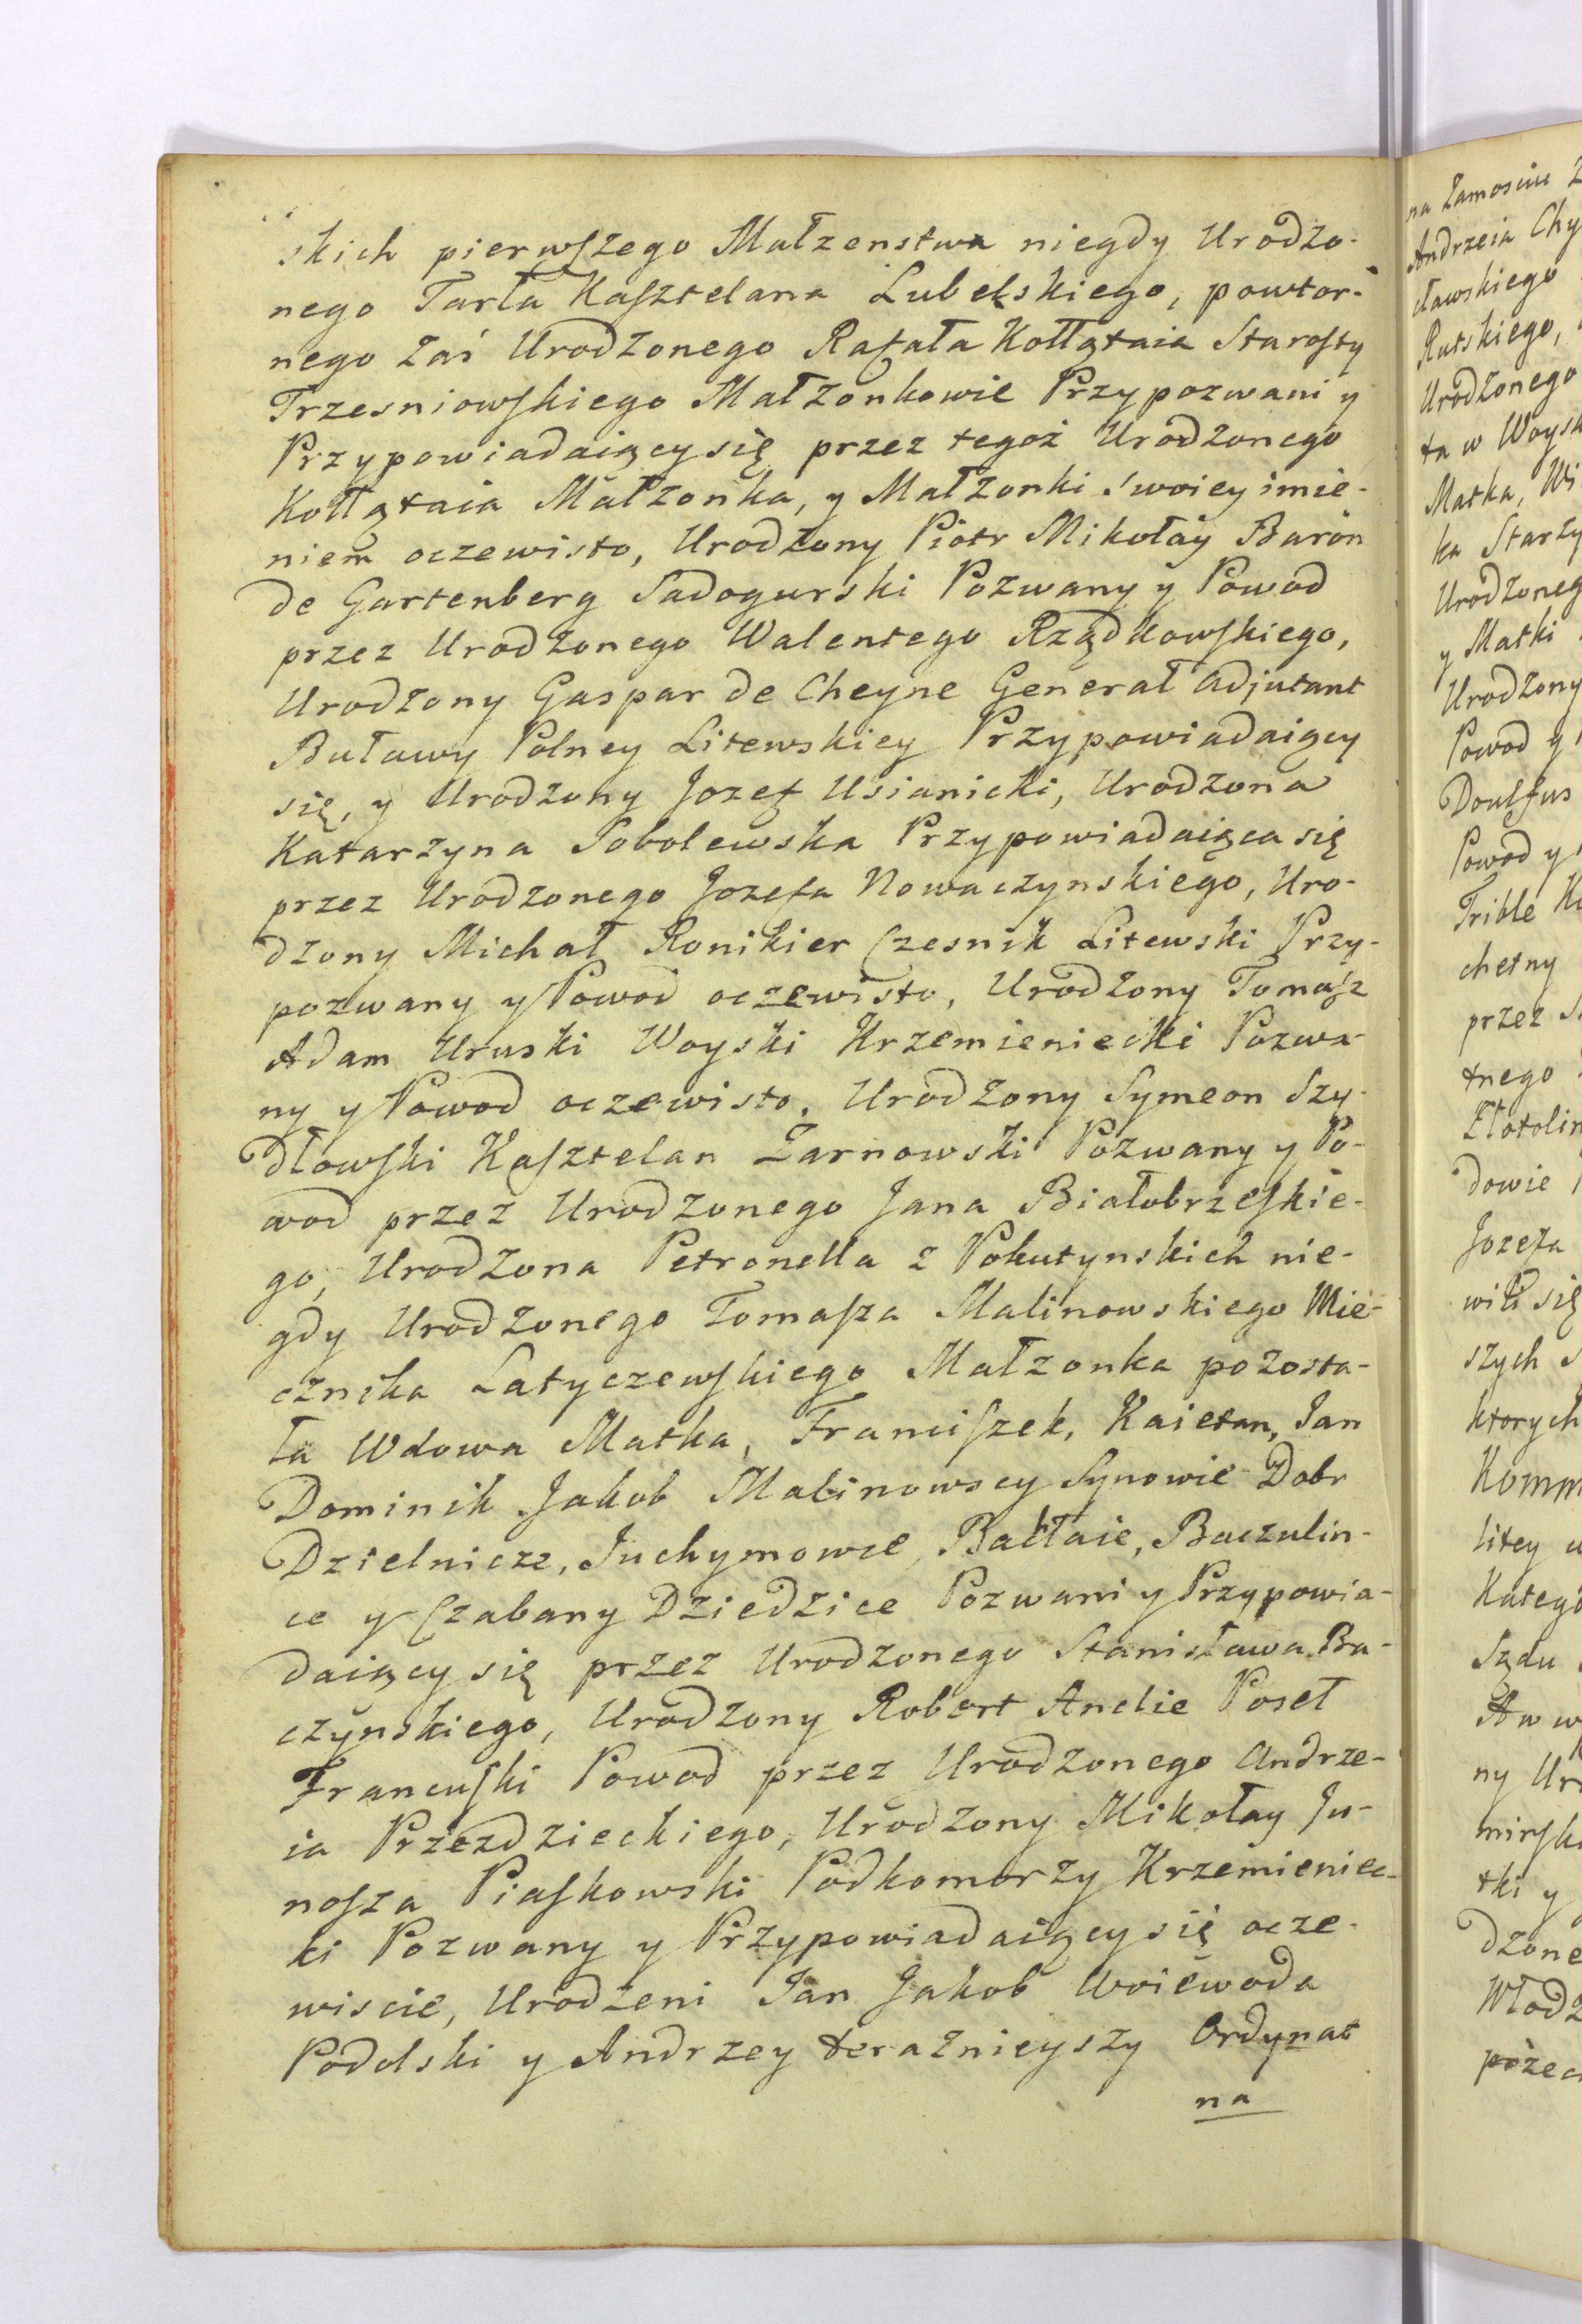 skich pierwſzego Małzenstwa niegdy Urodzo-
nego Tarła Kaſztelana Lubelskiego, powtor-
nego zaś Urodzonego Rafała Kołłątaia Staroſty
Trzesniowſkiego Małżonkowie Przypozwani y
Przypowiadaiący się przez tegoż Urodzonego
Kołłątaia Małżonka, y Małżonki Swoiey imie-
niem oczewisto, Urodzony Piotr Mikołay Baron
de Gartenberg Sadogurski Pozwany y Powod
przez Urodzonego Walentego Rządkowſkiego,
Urodzony Gaspar de Cheyne Generał Adjutant
Buławy Polney Litewskiey Przypowiadaiący
się, y Urodzony Jozef Usianicki, Urodzona
Katarzyna Sobolewska Przypowiadaiąca się
przez Urodzonego Jozefa Nowaczynskiego, Uro-
dzony Michał Ronikier Czesnik Litewski Przy-
pozwany y Powod oczewisto, Urodzony Tomaſz
Adam Uruski Woyski Krzemieniecki Pozwa-
ny y Powod oczewisto, Urodzony Symeon Szy-
dłowſki Kaſztelan Żarnowski Pozwany y Po-
wod przez Urodzonego Jana Białobrzeſkie-
go, Urodzona Petronella z Pokutynskich nie-
gdy Urodzonego Tomaſza Malinowskiego Mie-
cznika Latyczewſkiego Małżonka pozosta-
ła Wdowa Matka, Franciſzek, Kaietan, Jan
Dominik Jakob Malinowscy Synowie Dobr
Dzielnicze, Juchymowce, Bakłaie, Baczulin-
ce y Czabany Dziedzice Pozwani y Przypowia-
daiący się przez Urodzonego Stanisława Ba-
czynskiego, Urodzony Robert Anclie Poseł
Francuſki Powod przez Urodzonego Andrze-
ia Przezdzieckiego, Urodzony Mikołay Ju-
noſza Piaſkowski Podkomorzy Krzemieniec-
ki Pozwany y Przypowiadaiący się ocze-
wiscie, Urodzeni Jan Jakob Woiewoda
Podolski y Andrzey teraznieyszy Ordynat
na
na Zamosciu
Andrzeia Chy
cławskiego
Rutskiego,
Urodzonego
ta w Woysk
Matka, Wi
ka Starzy
Urodzoneg
y Matki
Urodzony
Powod y
Doulfus
Powod y
Trible
chetny
przez
tnego
Złotolin
dowie
Jozefa
wili się
szych
ktorych
Komm
litey
Katego
Sądu
A w
ny Ur
minſk
tki y
dzone
Włodz